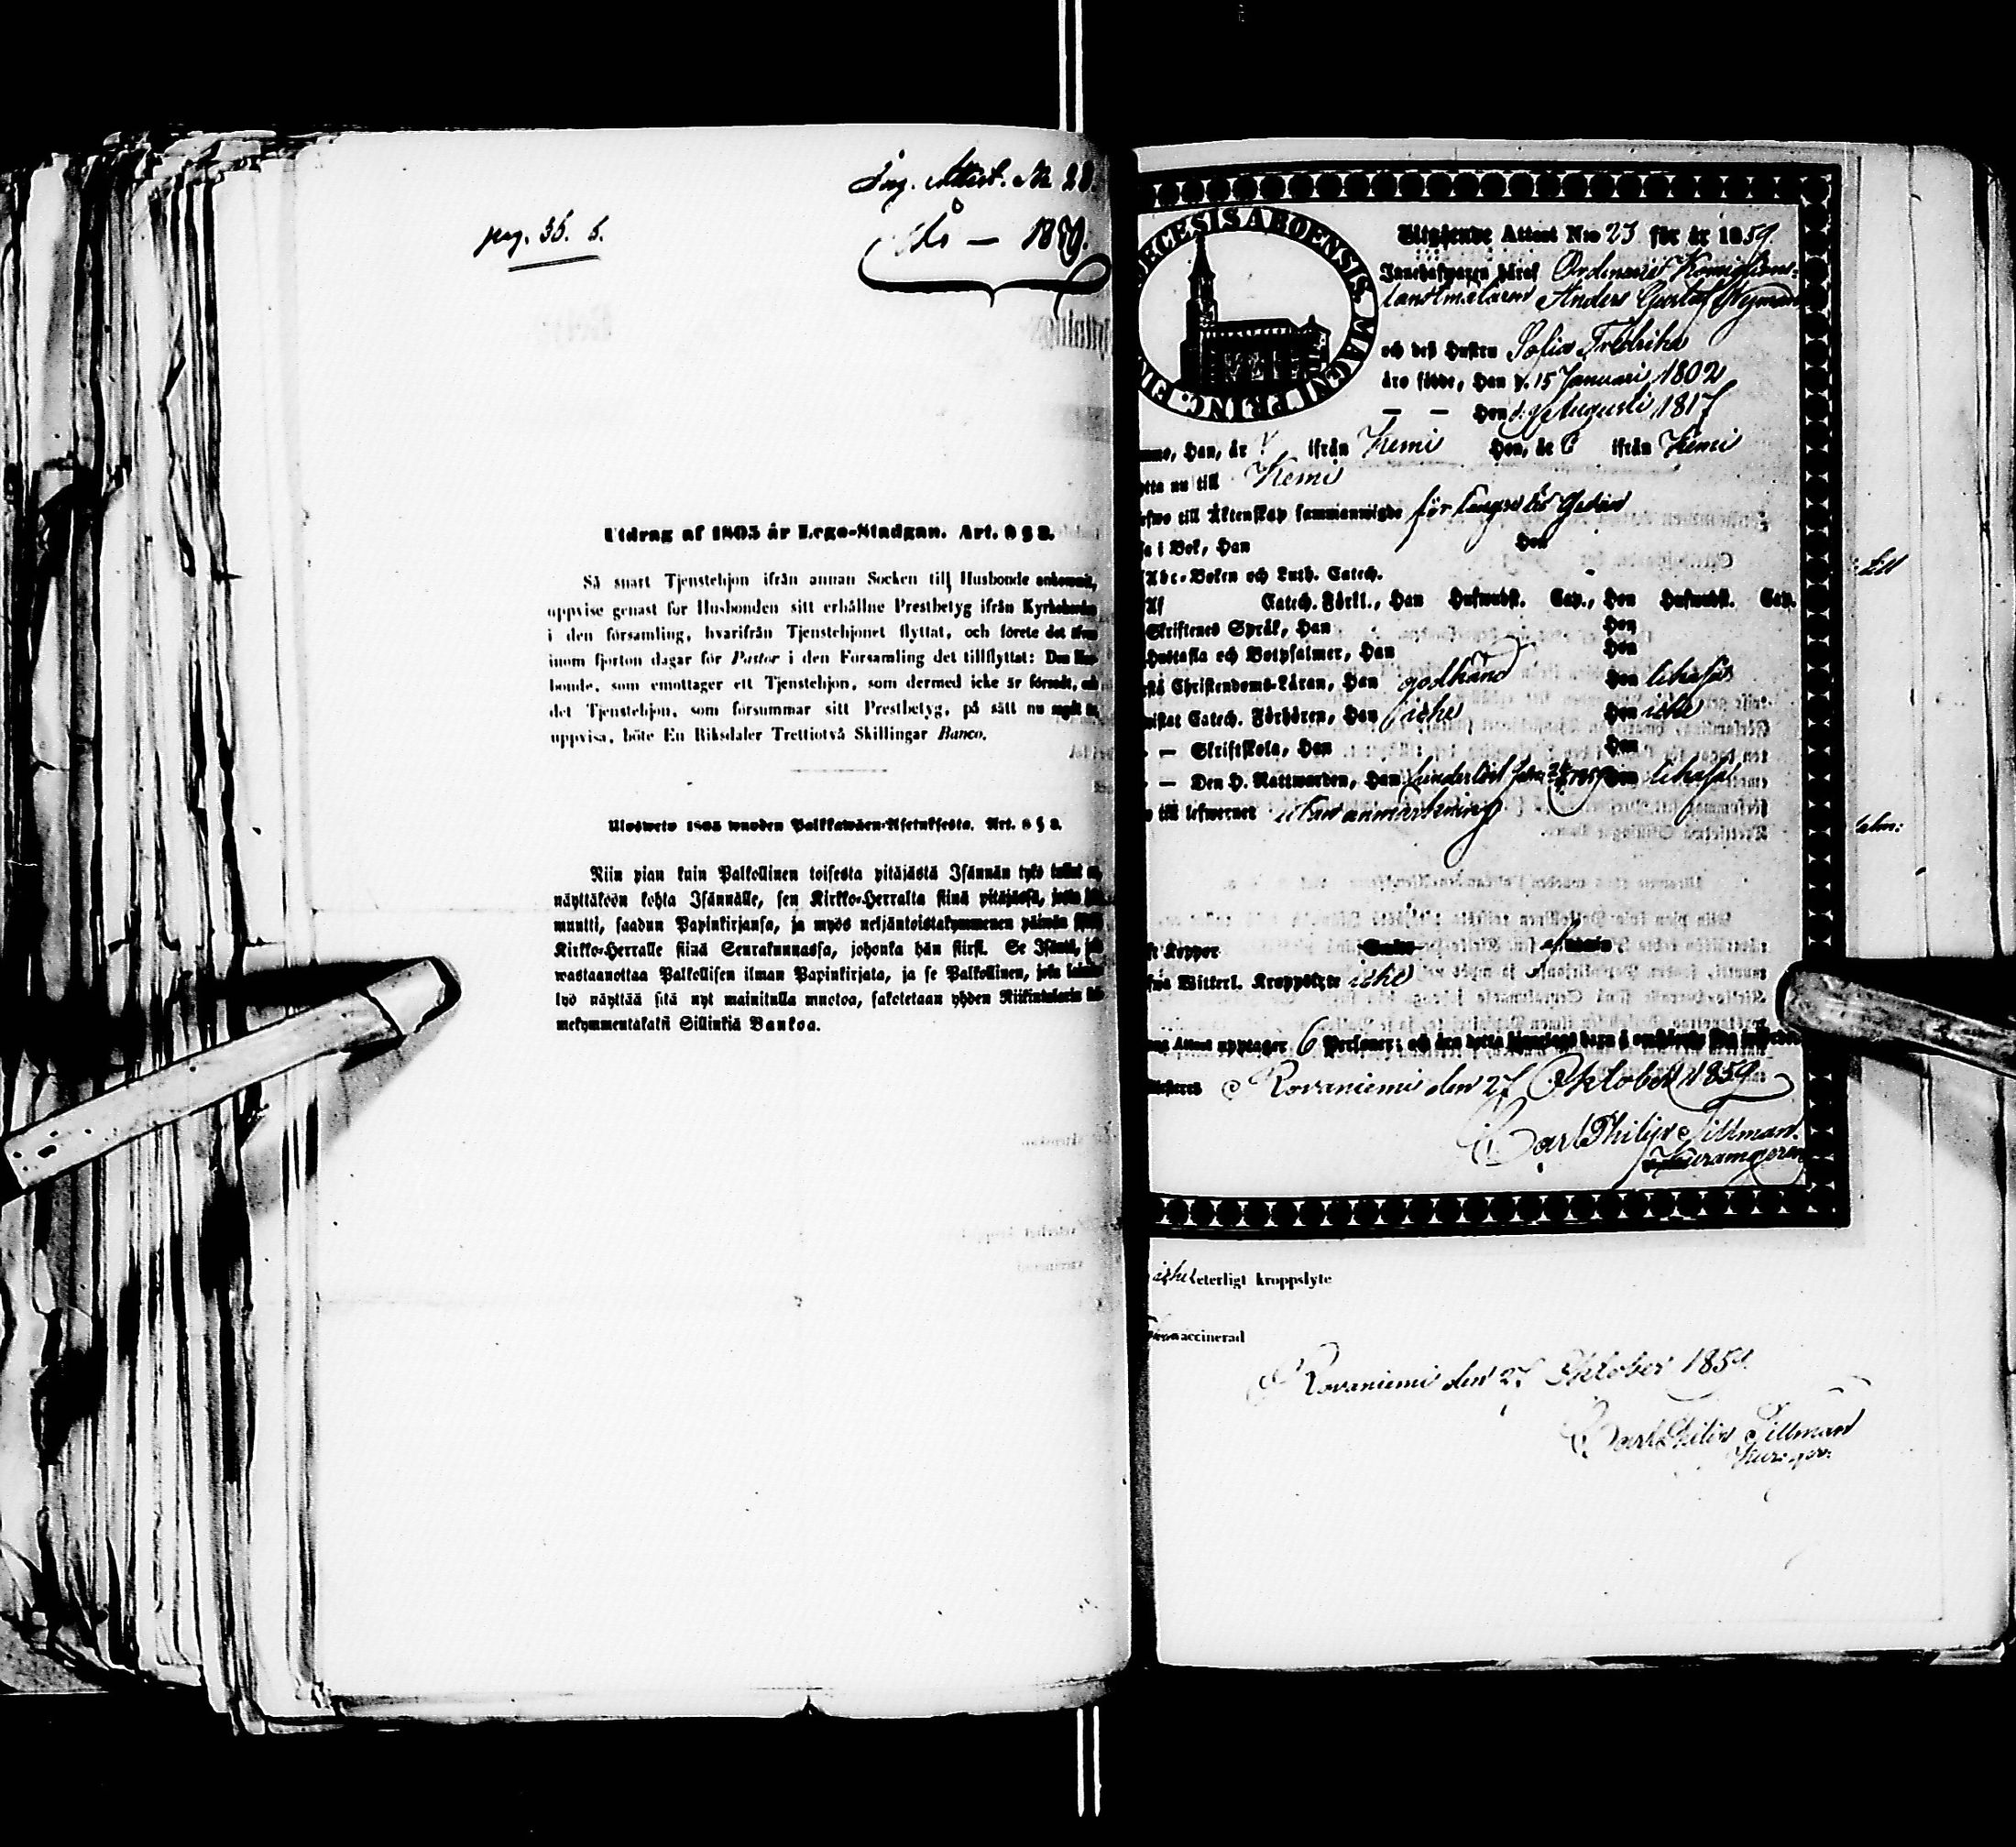 Ing. Attest. No 28.
pag. 35. b.
Utdrag af 1805 år Lego-Stadgan. Art. 8 § 3.
Så snart Tjenstehjon ifrån annan Socken till Husbonde ankommit,
uppvise genast för Husbonden sitt erhållne Prestbetyg ifrån Kyrkoherden
i den församling, hvarifrån Tjenstehjonet flyttat, och förete det
inom fjorton dagar för Pastor i den Församling det tillflyttat: Den Hus-
bonde, som emottager ett Tjenstehjon, som dermed icke är försedt, och
det Tjenstehjon, som försummar sitt Prestbetyg, på sätt nu sagdt är,
uppvisa, böte En Riksdaler Trettiotvå Skillingar Banco.
Ulosweto 1805 wuoden Palkkawäen-Asetuksesta. Art. 8 § 3.
Niin pian kuin Palkollinen toisesta pitäjästä Isännän tykö tullut on,
näyttäköön kohta Isännälle, sen Kirkko-Herralta siinä pitäjässä, josta hän
muutti, saadun Papinkirjansa, ja myös neljäntoistakymmenen päiwän
Kirkko-Herralle siinä Seurakunnassa, johonka hän siirsi. Se Isäntä, joka
wastaanottaa Palkollisen ilman Papinkirjata, ja se Palkollinen, joka
lyö näyttää sitä nyt mainitulla muotoa, sakoitetaan yhden Riikintalarin
mekymmentakaksi Sillinkiä Bankoa.
DIECESIS ABOENSIS MAGNI PRINC. FIN
Utgående Attest N:o 23 för år 1859.
Innehafwaren häraf Ordinarie Komissions-
landtmätaren Anders Gustaf Nyman
och deß Hustru Sofia Fredrika
äro födde, Han d. 15 Januari 1802
— — Hon d. 9 Augusti 1817
Han, år ifrån Kemi Hon, år ifrån Kemi
nu till Kemi
till Äktenskap sammanwigde för längre tid sedan
i Bok, Han Hon
Abc-Boken och Luth. Catech.
Af Catech. Förkl., Han Hufwudst. Cap., Hon Hufwudst. Cap.
Skriftenes Språk, Han Hon
Hustafla och Botpsalmer, Han Hon
Christendoms-Läran, Han godkänd Hon likaså
Catech. Förhören, Han icke Hon icke
— Skriftskola, Han Hon
— Den H. Nattwarden, Han likaså
till lefwernet utan anmärkning
Koppor
Witterl. Kroppslyte icke
Attest upptager 6 Personer; och äro
Rovaniemi den 27 Oktober 1859
Carl Philip Tillman.
icke veterligt kroppslyte
vaccinerad
Rovaniemi den 27 Oktober 1859
Carl Philip Tillman